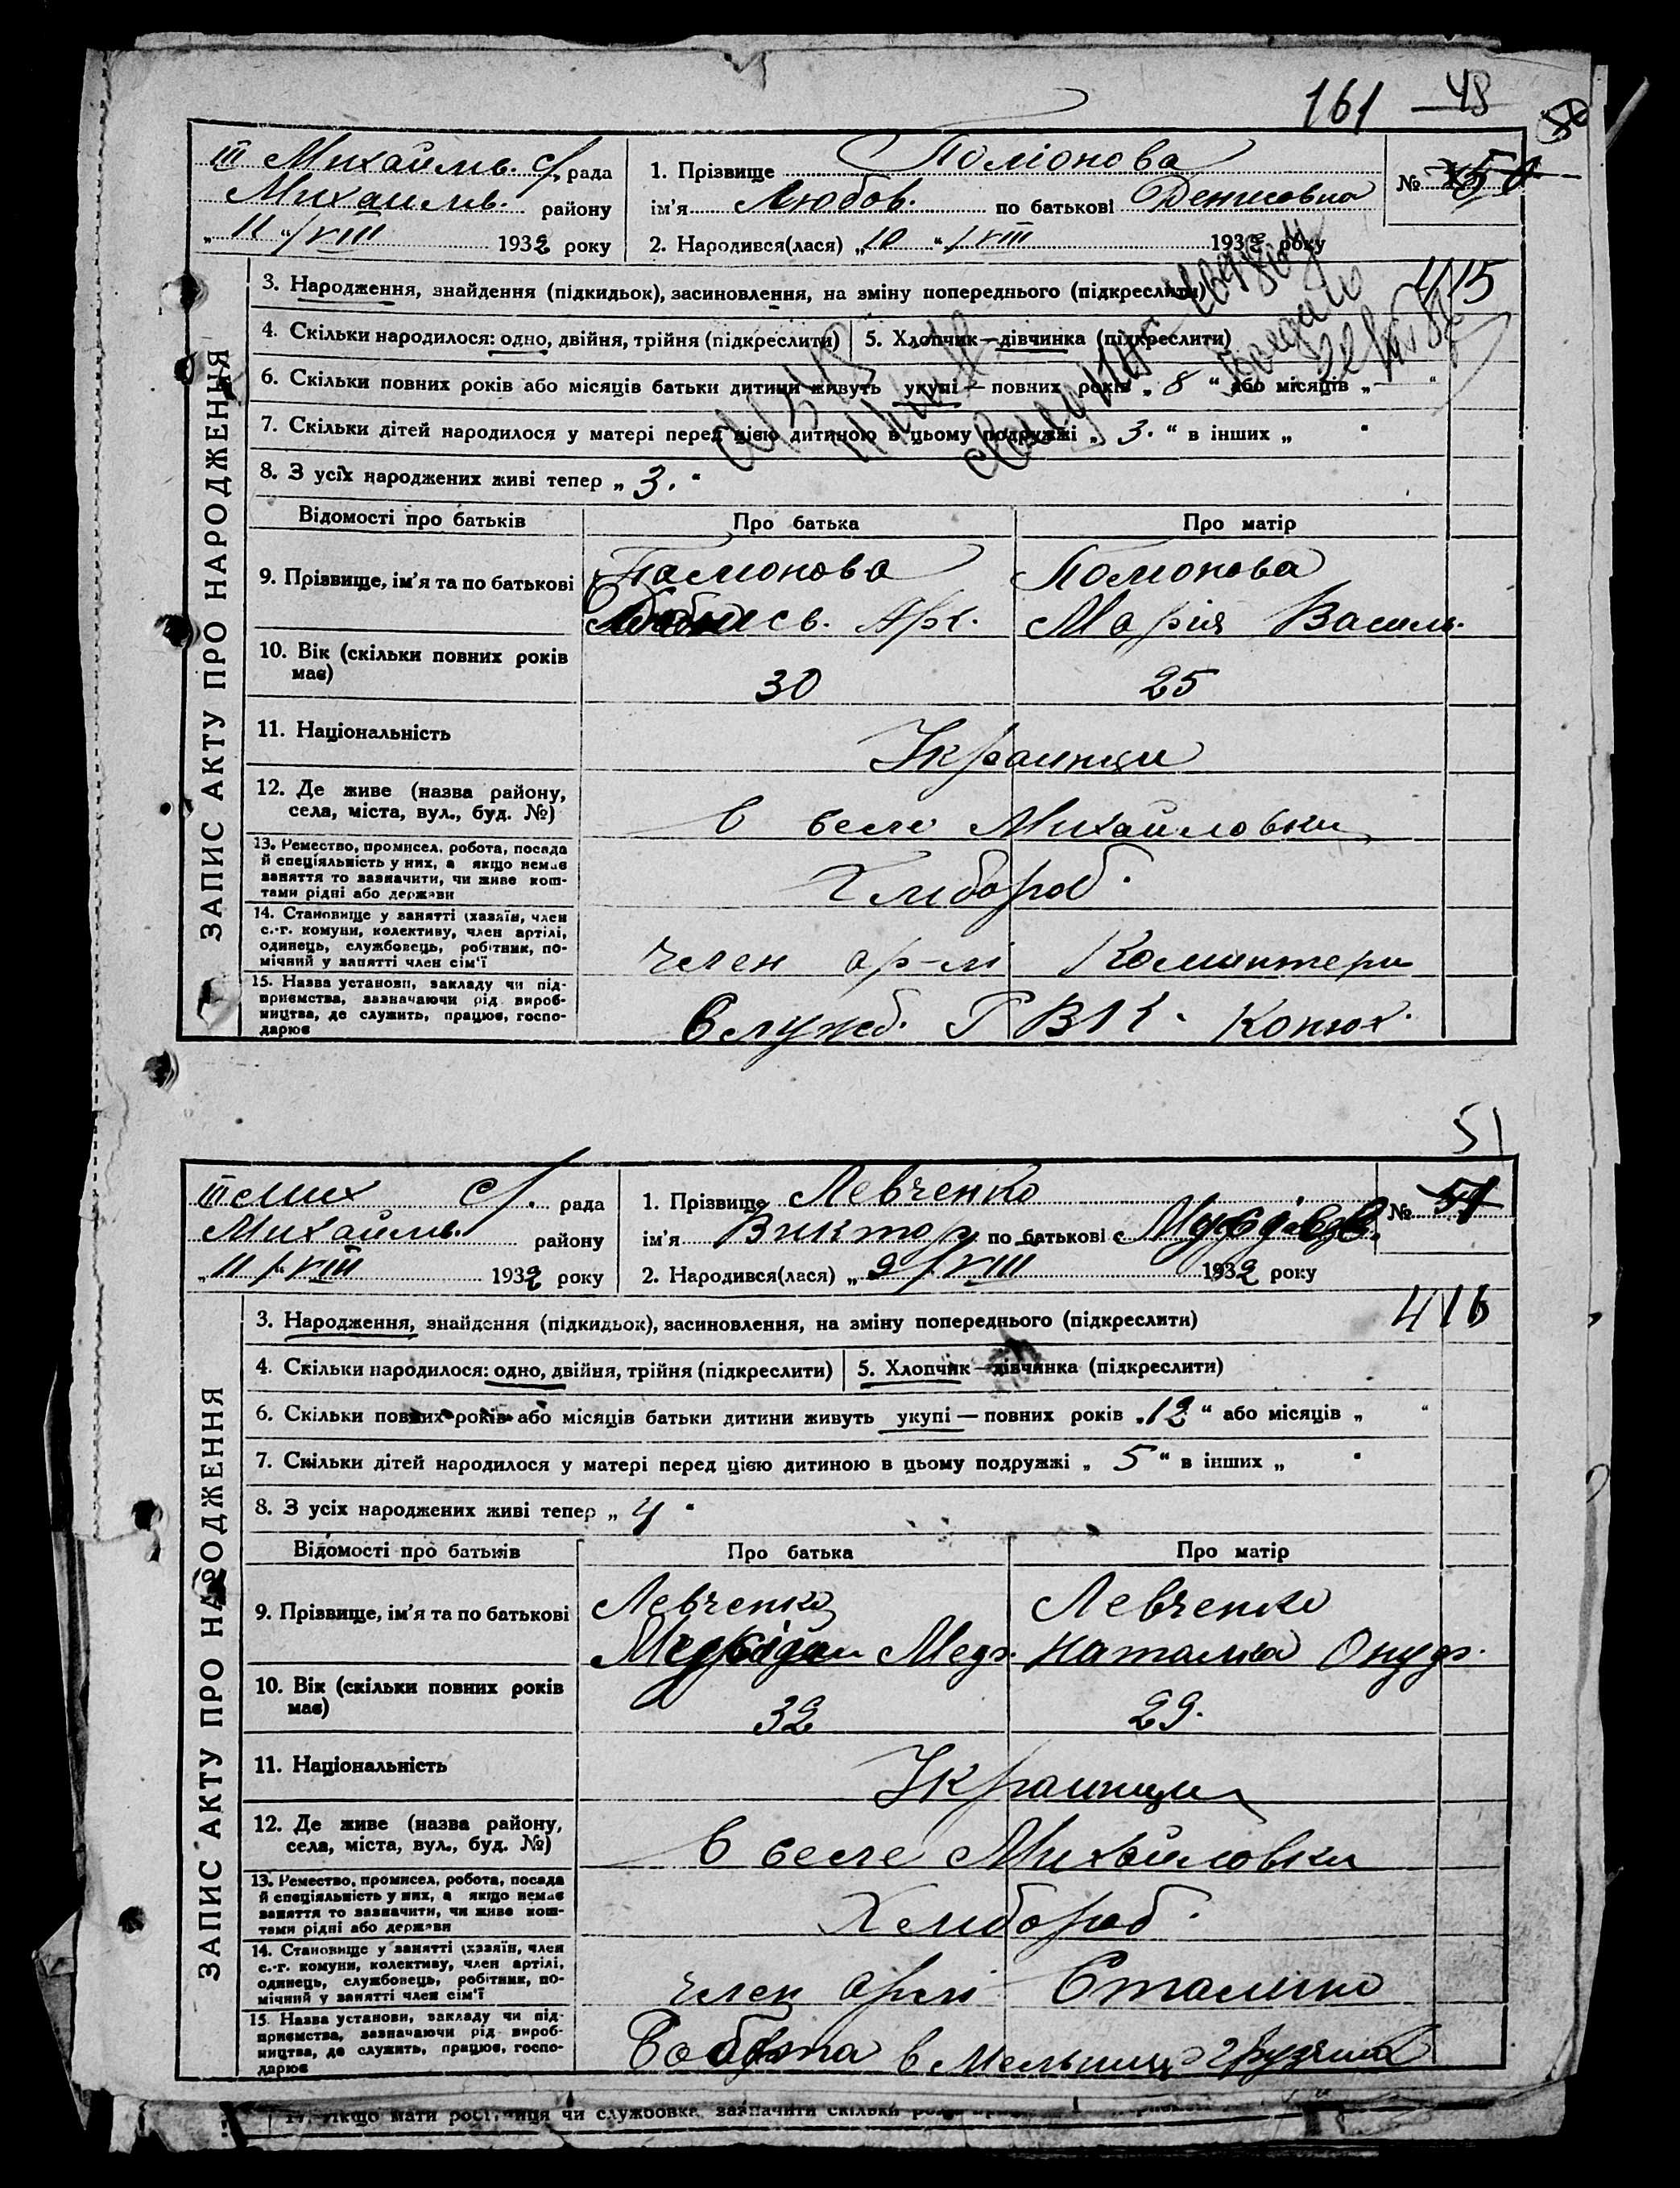 161 48
50
III Михайлв. с/рада
Михаилв. району
„ 11 “ / VIII 1932 року
1. Прізвище Поліонова
ім'я Любов. по батькові Денисовна
2. Народився(лася) „10 “ / VIII 1932 року
№ 50
415
ЗАПИС АКТУ ПРО НАРОДЖЕННЯ
3. Народження, знайдення (підкидьок), засиновлення, на зміну попереднього (підкреслити)
4. Скільки народилося: одно, двійня, трійня (підкреслити)
5. Хлопчик—дівчинка (підкреслити)
6. Скільки повних років або місяців батьки дитини живуть укупі — повних років „ 8 “ або місяців „ — “
7. Скільки дітей народилося у матері перед цією дитиною в цьому подружжі „ 3. “ в інших „ “
8. З усіх народжених живі тепер „ 3. “
Відомості про батьків Про батька Про матір
9. Прізвище, ім'я та по батькові
Помонова Помонова
Арх. Мария Василь.
10. Вік (скільки повних років має)
30 25
11. Національність
Украинци
12. Де живе (назва району,
села, міста, вул., буд. №)
в селе Михайловки
13. Ремество, промисел, робота, посада
й спеціяльність у них, а якщо немає
заняття то зазначити, чи живе кош-
тами рідні або держави
Хлибороб.
14. Становище у занятті (хазяїн, член
с.-г. комуни, колективу, член артілі,
одинець, службовець, робітник, по-
мічний у занятті член сім'ї
член ар-лі Коминтерн
15. Назва установи, закладу чи під-
приємства, зазначаючи рід вироб-
ництва, де служить, працює, госпо-
дарює
Служб. РВК. Конюх.
51
III Мих с/. рада
Михайлв. району
„ 11 / VIII 1932 року
1. Прізвище Левченко
ім'я Виктор по батькові
2. Народився(лася) „ 9 / VIII 1932 року
№ 51
416
ЗАПИС АКТУ ПРО НАРОДЖЕННЯ
3. Народження, знайдення (підкидьок), засиновлення, на зміну попереднього (підкреслити)
4. Скільки народилося: одно, двійня, трійня (підкреслити)
5. Хлопчик—дівчинка (підкреслити)
6. Скільки повних років або місяців батьки дитини живуть укупі — повних років „12 “ або місяців „ “
7. Скільки дітей народилося у матері перед цією дитиною в цьому подружжі „ 5 “ в інших „ “
8. З усіх народжених живі тепер „ 4 “
Відомості про батьків Про батька Про матір
9. Прізвище, ім'я та по батькові
Левченко Левченко
Наталка Онуф.
10. Вік (скільки повних років має)
32 29.
11. Національність
Украинци
12. Де живе (назва району,
села, міста, вул., буд. №)
в селе Михайловки
13. Ремество, промисел, робота, посада
й спеціяльність у них, а якщо немає
заняття то зазначити, чи живе кош-
тами рідні або держави
Хлибороб.
14. Становище у занятті (хазяїн, член
с.-г. комуни, колективу, член артілі,
одинець, службовець, робітник, по-
мічний у занятті член сім'ї
член арлі Сталіно
15. Назва установи, закладу чи під-
приємства, зазначаючи рід вироб-
ництва, де служить, працює, госпо-
дарює
Робота в Мельници грузчик